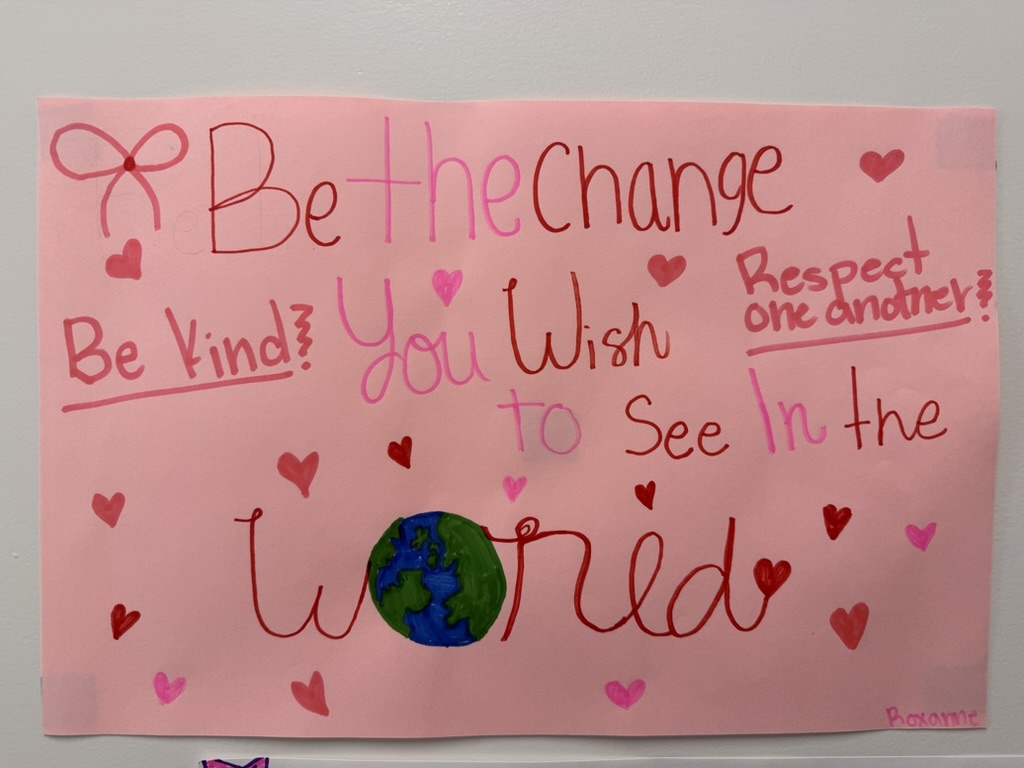 Be the Change
Be Kind!
You Wish
Respect
one another!
to See In the
World
Roxanne